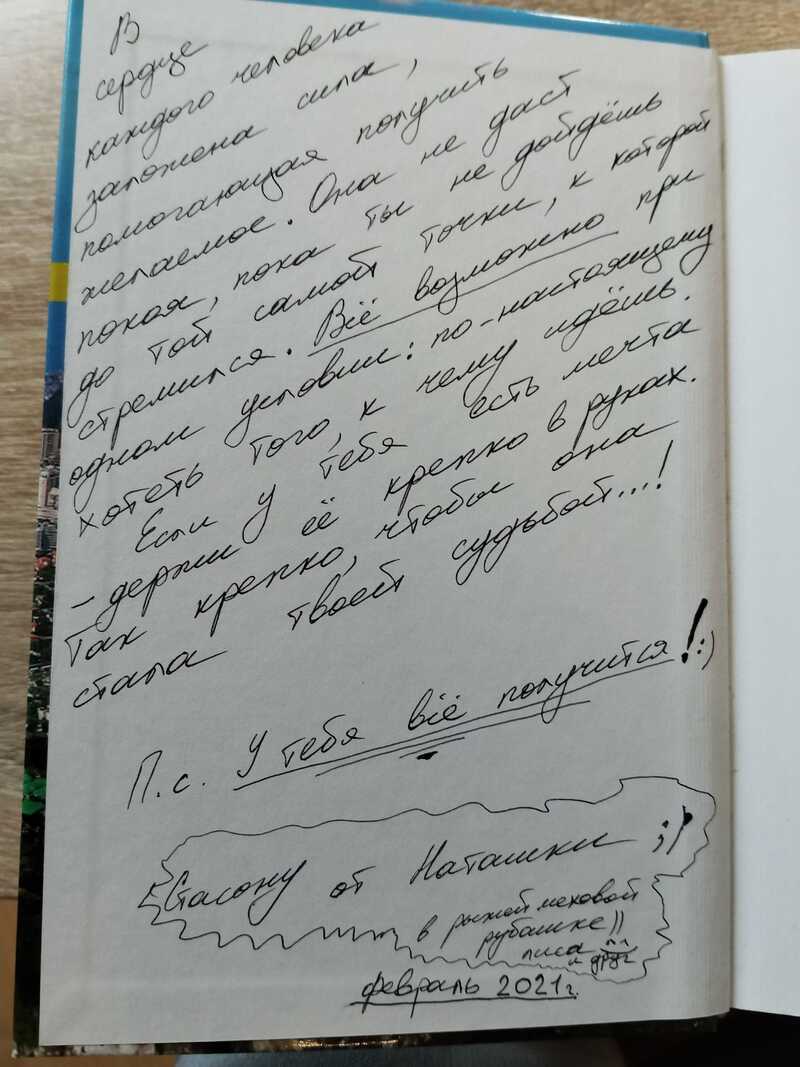 В
сердце
каждого человека
заложена сила,
помогающая получить
желаемое. Она не даст
покоя, пока ты не дойдёшь
до той самой точки, к которой
стремился. Всё возможно при
одном условии: по-настоящему
хотеть того, к чему идёшь.
Если у тебя есть мечта
- держи её крепко в руках.
Так крепко, чтобы она
стала твоей судьбой...!
П.с. У тебя всё получится! :)
Стасону от Наташки ;)
в рыжей меховой
рубашке))
лиса ^^
и друг
февраль 2021г.